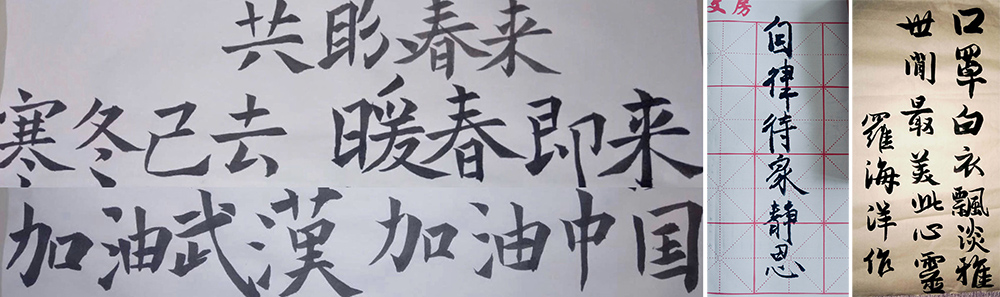 共盼春来
寒冬已去 暖春即来
加油武漢 加油中国
文房
自律待家靜思
口罩白衣飄淡雅
世間最美此心靈
羅海洋作